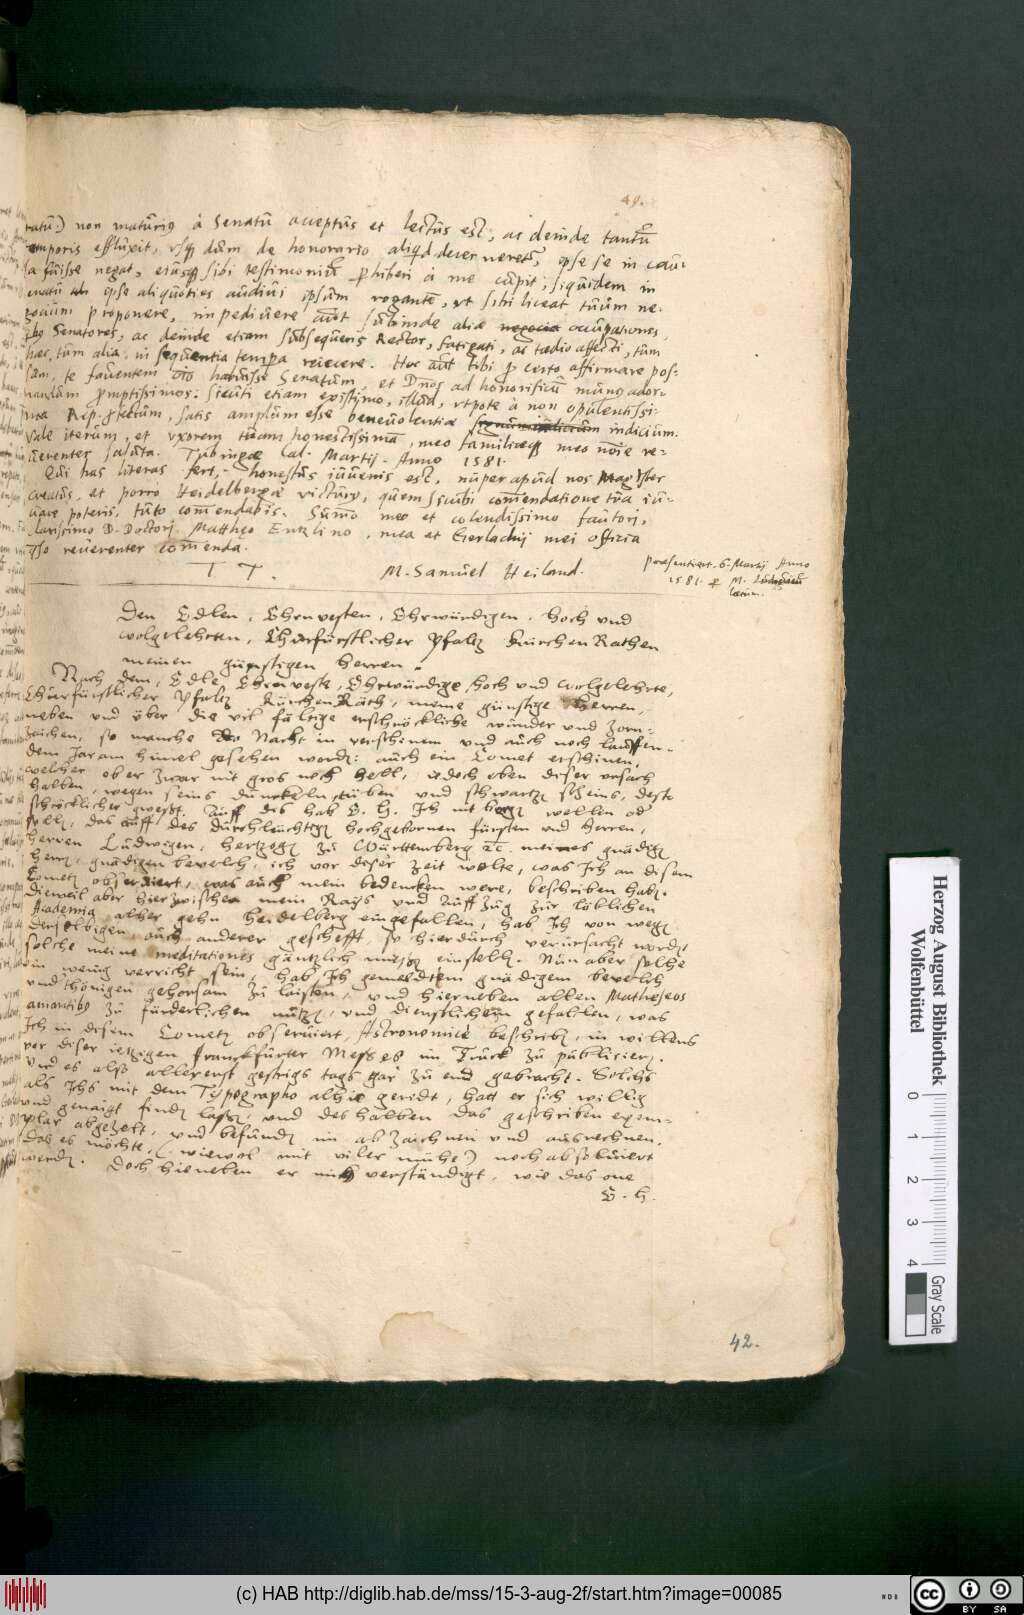 49.
ratū) non maturiq à Senatū acceptus et lectus est, ac deinde tantū
temporis effluxit, usq dum de honorario aliqd decerneretr, ipse se in cau-
sa fuisse negat, eiusq sibi testimoniū phiberi à me cupit, siquidem in
senatū ipse aliquoties audivi ipsum rogantē, ut sibi liceat tuum ne-
gocium proponere, impedivere aūt subinde aliae negocia occupationes,
quibq Senatores, ac deinde etiam subsequens Rector, fatigati, ac taedio affecti, tum
haec, tum alia, in sequentia tempa reiecere. Hoc aūt tibi p certo affirmare pos-
sum, te faventem habuisse Senatum, et Dnos ad honorificū munq ador-
nandum promptissimos: sicuti etiam existimo, illud, utpote à non opulentissi-
ma Rep. pfectum, satis amplum esse benevolentiae indicium.
Vale iterum, et uxorem tuam honestissimā, meo familiaeq meo noīe re-
verenter saluta. Tubingae Cal. Martij. Anno 1581.
Qui has literas fert, honestus iuvenis est, nuper apud nos Magister
creatus, et porro Heidelbergae victurq, quem sicubi comendatione tua iu-
vare poteris, tuto comendabis. Sumo meo et colendissimo fautori,
clarissimo D. Doctori Matthęo Entzlino, mea et Gerlachij mei officia
qso reverenter comenda.
T T. M. Samuel Heiland.
Praesentirt. 6. Martij Anno
1581. p M. Ludovicū
laeum.
Den Edlen, Ehrnvesten, Ehrwürdigen, Hoch und
wolgelehrten, Churfürstlicher Pfaltz Kürchen Rathen
meinen günstigen Herren.
Nach dem, Edle, Ehrnveste, Ehrwürdige, hoch und wolgelehrte,
Churfürstlicher Pfaltz Kürchen Räth, meine günstige Herren,
neben und über die vil fältige erschröckliche wunder und Zorn-
zeichen, so manche Nacht in verschinem und auch noch lauffen-
dem Jar am himel gesehen wordē: auch ein Comet erschinen,
welcher ob er zwar nit gros noch hell, iedoch eben diser ursach
halben, wegen seins dunckeln, trüben und schwartzē scheins, dest
schröcklicher gwesst. Auff das hab E. H. Ich nit bergē wellen od
sollē, das auff des durchleuchtigē hochgebornen fürsten und Herren,
Herren Ludwigen, hertzogē zu Württemberg etc. meines gnädigē
herrē, gnädigen bevelch, ich vor diser zeit wolte, was Ich an disem
Cometē observiert, was auch mein bedencken were, beschriben habē.
Dieweil aber hierzwischen mein Rays und auffzug zur löblichen
Academia alher gehn Heidelberg eingefallen, hab Ich von wegē
derselbigen, auch anderer gescheft, so hierdurch verursacht wordē,
solche meine meditationes gäntzlich müssē einstellē. Nun aber solche
ein wenig verricht sein, hab Ich gemeldtem gnädigem bevelch
underthönigen gehorsam zu laisten, und hierneben allen Matheseos
amantibq zu fürderlichen nutzē, und dienstlichem gefallen, was
Ich in disem Cometē observiert, Astronomicè beschribē, in willens
vor diser ietzigen Franckfurter Messes im Truck zu publicierē.
Und es also allererst gestrigs tags gar zu end gebracht. Solchs
als Ichs mit dem Typographo alhie geridt, hatt er sich willig
und genaigt findē lassē, und deshalben das geschriben exem-
plar abgezelt, und befundē im abzaichnen und ausrechnen,
das es möchte, (wiewol mit viler mühe) noch absolviert
werdē. Doch hieneben er mich verständigt, wie das one
E. H.
42.
Herzog August Bibliothek
Wolfenbüttel
0 1 2 3 4
Gray Scale
(c) HAB http://diglib.hab.de/mss/15-3-aug-2f/start.htm?image=00085
WDB
cc BY SA